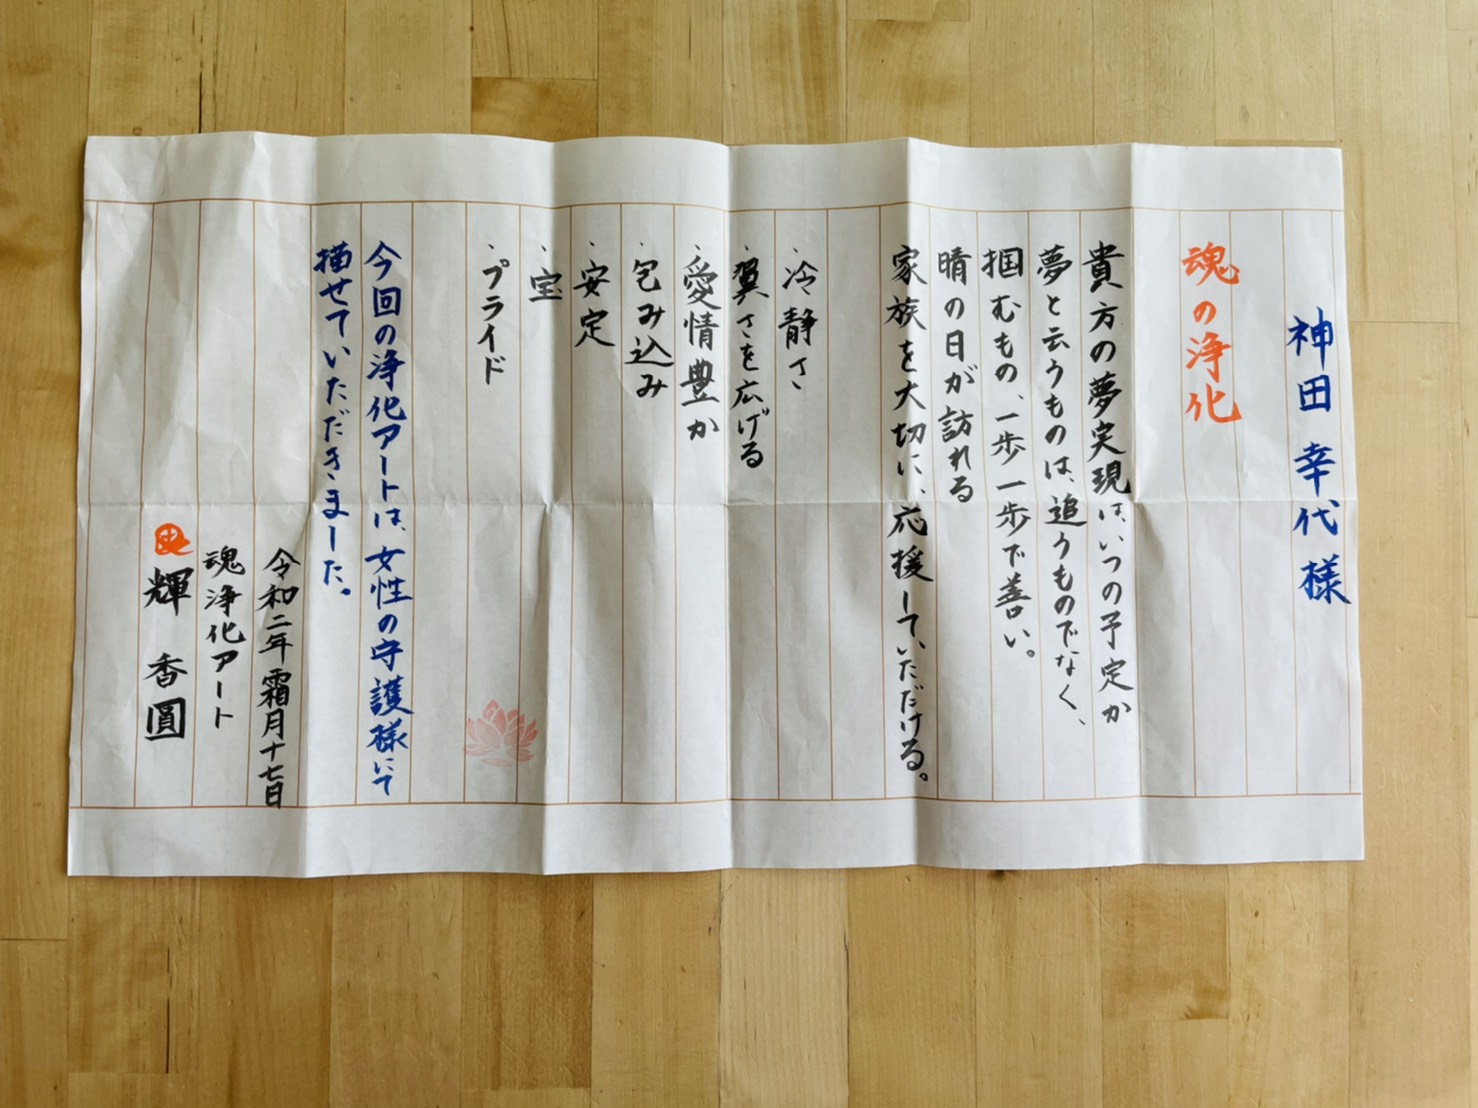 神田 幸代 様
魂の浄化
貴方の夢実現は、いつの予定か
夢と云うものは、追うものでなく、
掴むもの、一歩一歩で善い。
晴の日が訪れる
家族を大切に、応援していただける。
、冷静さ
、翼さを広げる
、愛情豊か
、包み込み
、安定
、宝
、プライド
今回の浄化アートは、女性の守護様にて
描せていただきました。
令和二年霜月十七日
魂浄化アート
輝 香圓